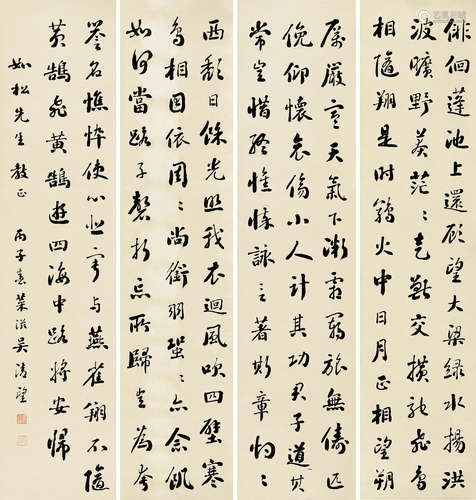 徘徊蓬池上還顧望大梁綠水揚洪
波曠野莽茫々走獸交橫馳飛鳥
相隨翔是時鶉火中日月正相望朔
厲嚴寒天氣下漸霜羈旅無儔匹
俛仰懷哀傷小人計其功君子道其
常豈惜終憔悴詠言著斯章灼々
西頹日餘光照我衣迴風吹四壁寒
鳥相因依周々尚銜羽蛩々亦念飢
如何當路子磬折忘所歸豈為夸
譽名憔悴使心悲寧與燕雀翔不隨
黃鵠飛黃鵠遊四海中路將安歸
如松先生教正 丙子春滋吳清望